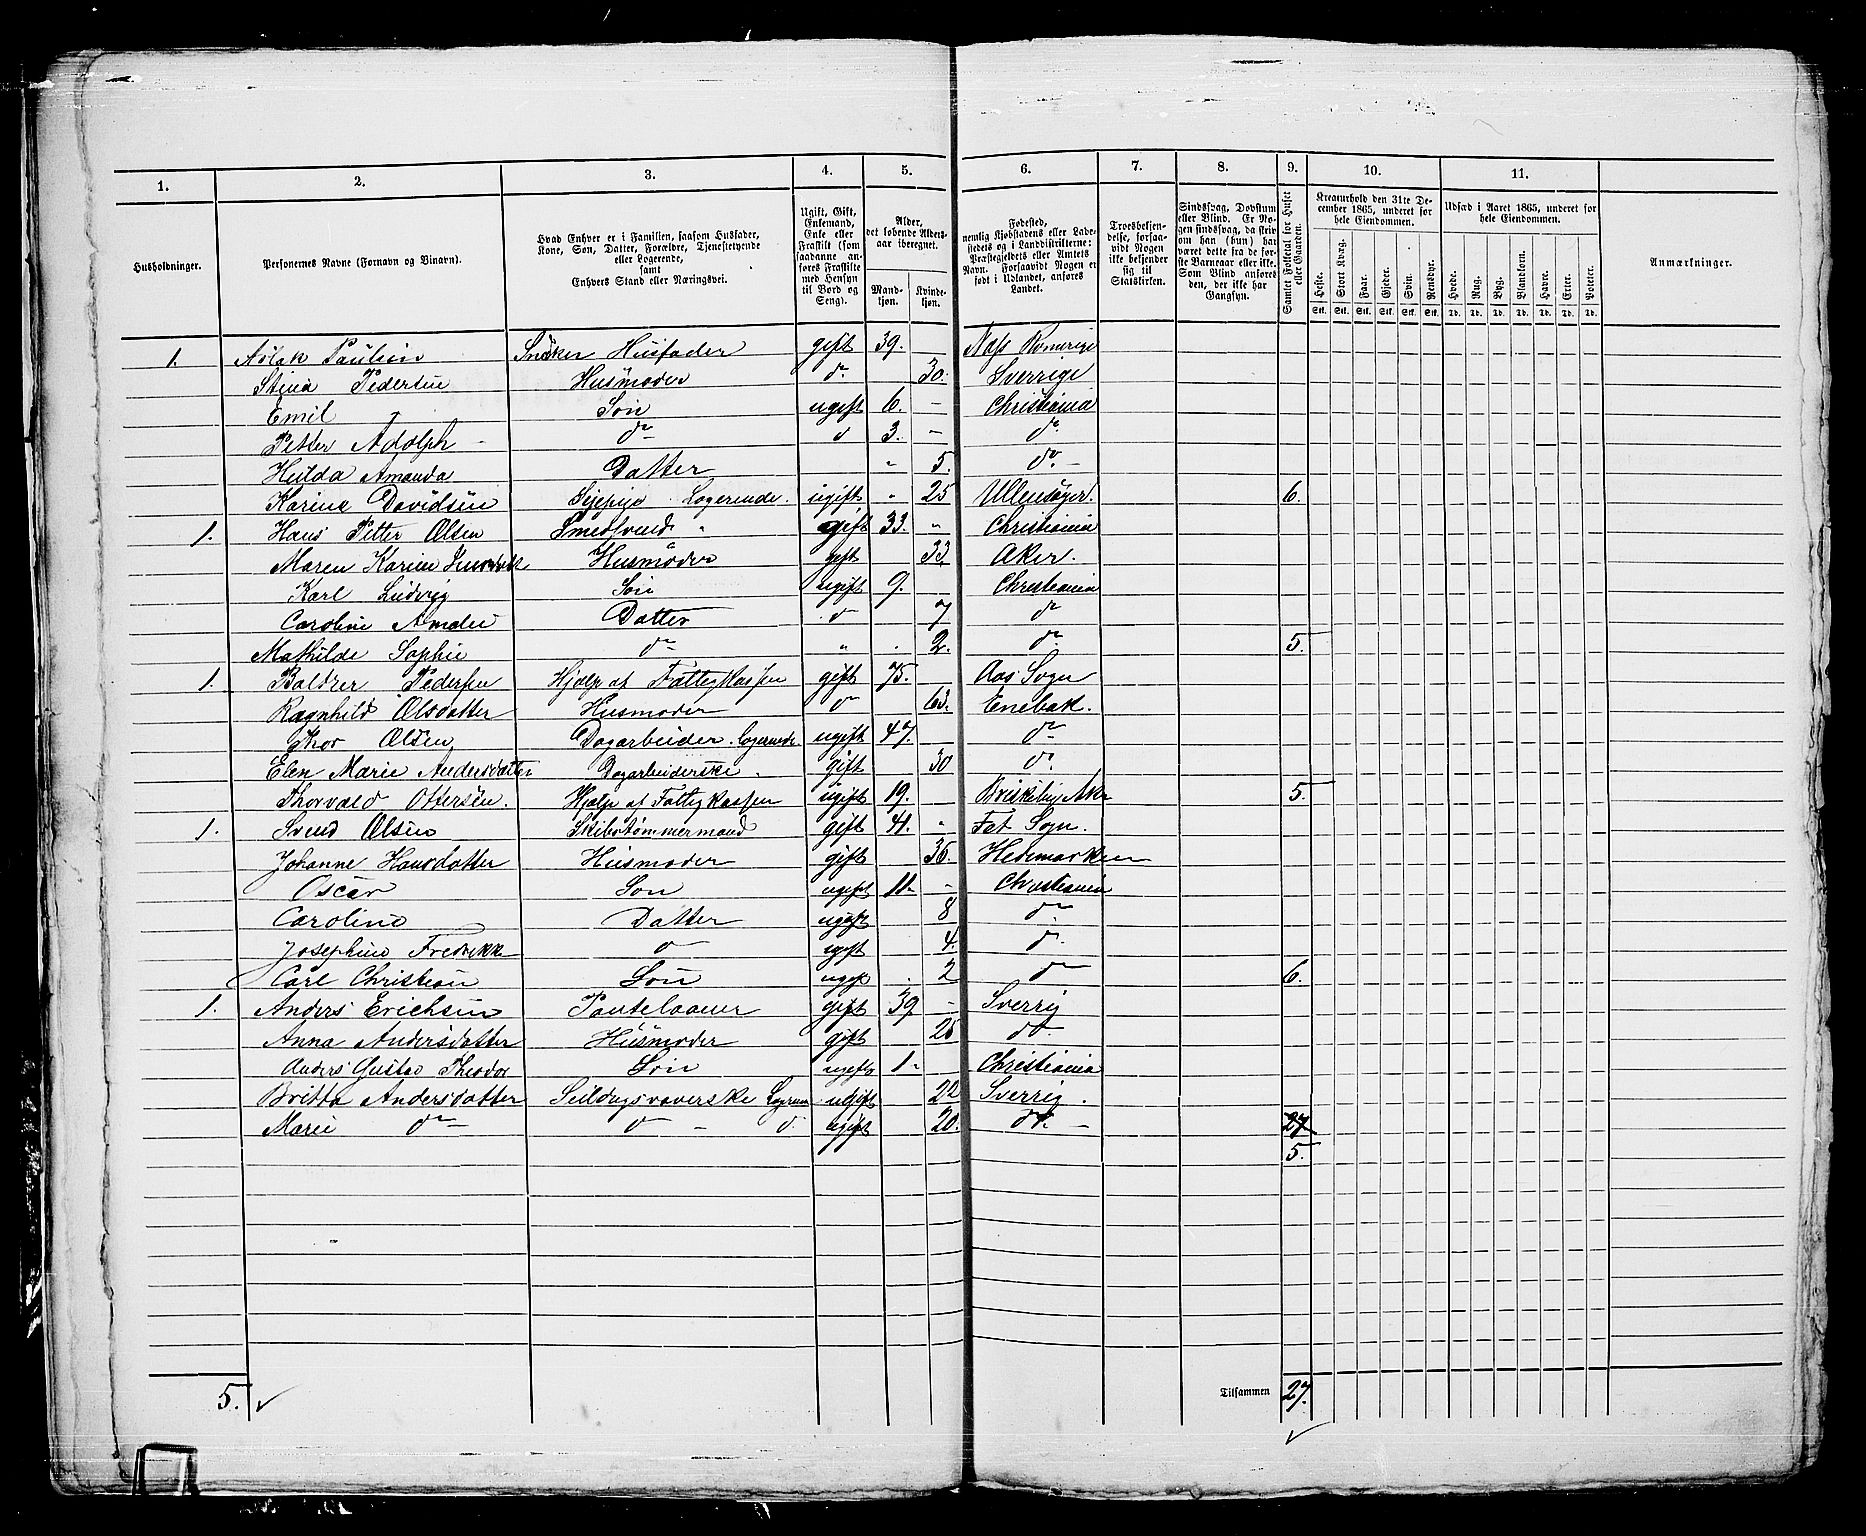 1. 2. 3. 4. 5. 6. 7. 8. 9. 10. 11.
Husholdninger.
Personernes Navne (Fornavn og Binavn).
Hvad Enhver er i Familien, saasom Husfader, Kone, Søn, Datter, Forældre, Tjenestetyende eller Logerende, samt Enhvers Stand eller Næringsvei.
Ugift, Gift, Enkemand, Enke eller Fraskilt (som saadanne anføres Fraskilte med Hensyn til Bord og Seng).
Alder, det løbende Aldersaar iberegnet.
Mandkjøn. Kvindekjøn.
Fødested, nemlig Kjøbstadens eller Ladestedets og i Landdistrikterne: Præstegjeldets eller Amtets Navn. Forsaavidt Nogen er født i Udlandet, anføres Landet.
Troesbekjendelse, forsaavidt Nogen ikke bekjender sig til Statskirken.
Sindssvag, Døvstum eller Blind. Er Nogen sindssvag, da skrives om han (hun) har været dette fra de første Barneaar eller ikke. Som Blind anføres den, der ikke har Gangsyn.
Samlet Folketal for Huset eller Gaarden.
Kreaturhold den 31te December 1865, underet for hele Eiendommen.
Heste. Stort Kvæg. Faar. Gjeder. Svin. Rensdyr.
Stk. Stk. Stk. Stk. Stk. Stk.
Udsæd i Aaret 1865, underet for hele Eiendommen.
Hvede. Rug. Byg. Blandkorn. Havre. Erter. Poteter.
Td. Td. Td. Td. Td. Td. Td.
Anmærkninger.
1. Aslak Paulsen Snedker Husfader gift 39. Næss Romerige
Stina Pedersen Husmoder do 30. Sverrige
Emil Søn ugift 6. - Christiania
Petter Adolph - do d 3. - do
Hulda Amanda Datter " 5. do -
Karine Davidsen Sypige Logerende. ugift " 25 Ullensager. 6.
1. Hans Petter Olsen Smedsvend " gift 33. " Christiania
Maren Karine Husmoder gift 33. Aker.
Karl Ludvig Søn ugift 9. Christiania
Caroline Amalie Datter d 7 do
Mathilde Sophie do " . 2. do 5.
1. Baldzer Pedersen Hjælp af Fattigkassen gift 75. Aas Sogn
Ragnhild Olsdatter Husmoder d 63. Enebak.
Thor Olsen Dagarbeider. Logerende. ugift 47. do
Elen Marie Andersdatter Dagarbeiderske. gift 30 do
Thorvald Ottersen. Hjælp af Fattigkassen ugift 19. Briskeby Aker 5.
1. Svend Olsen Skibstømmermand gift 41. " Fet Sogn.
Johanne Hansdatter Husmoder gift 36. Hedemarken
Oscar Søn ugift 11. - Christiania
Caroline Datter ugift 8 do
Josephine Fredrikke d ugift 4. do
Carl Christian Søn ugift . 2 do 6.
1. Anders Erichsen Pantelaaner gift 39 - Sverrig
Anna Andersdatter Husmoder gift 26 do.
Anders Gustav Theodor Søn ugift 1 - Christiania
Britta Andersdatter Seildugsvæverske ugift 22 Sverrig.
Marie do d - d. ugift 20. do. - 27
5.
5. ✓ Tilsammen 27. ✓